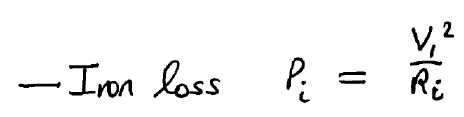 — Iron loss P_i = V_1^2 / R_i